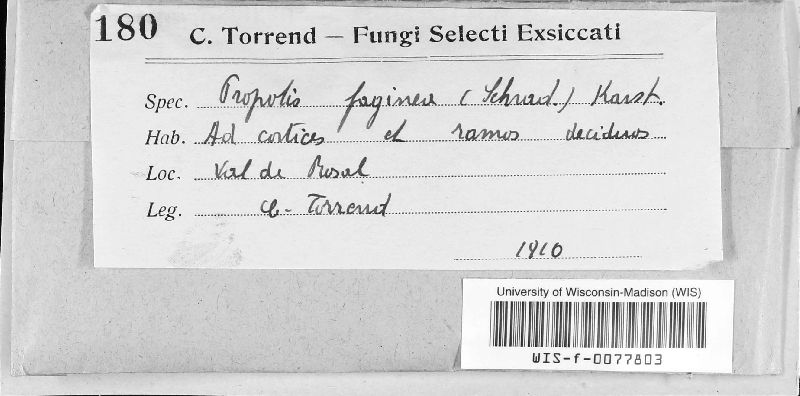 180 C. Torrend — Fungi Selecti Exsiccati
Spec. Propolis faginea (Schrad.) Karst.
Hab. Ad cortices et ramos deciduos
Loc. Val de Rosal
Leg. C. Torrend
1910
University of Wisconsin-Madison (WIS)
WIS-f-0077803